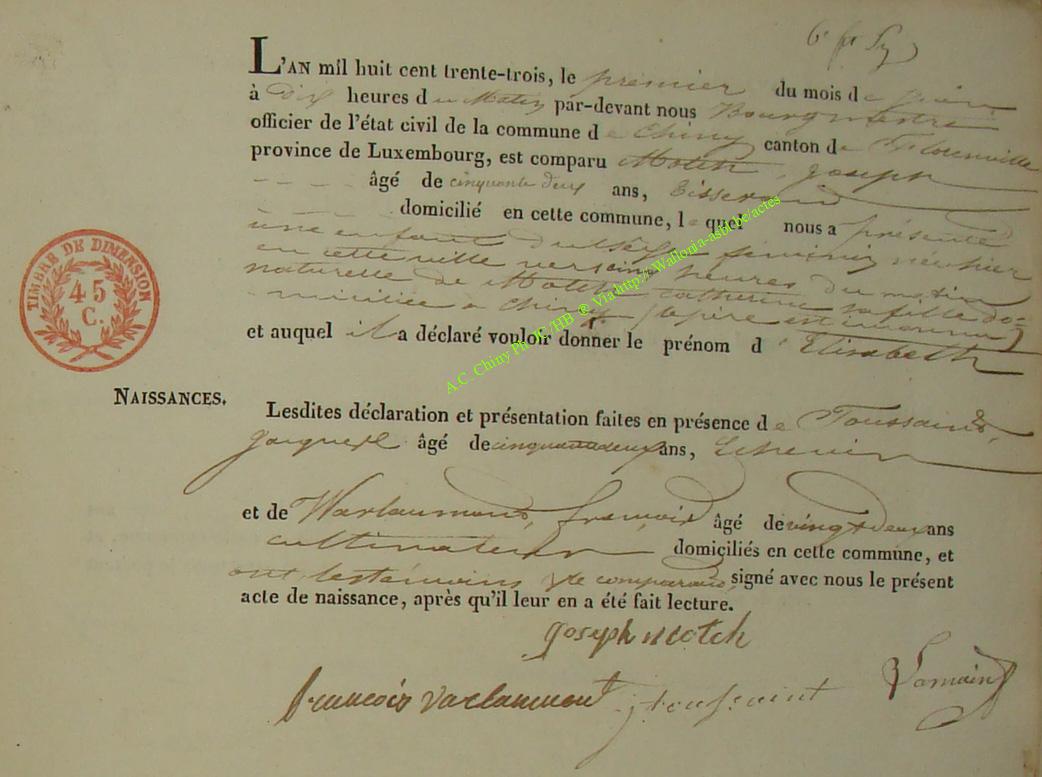 L'AN mil huit cent trente-trois, le premier du mois de juin
à dix heures du Matin par-devant nous Bourgmestre
officier de l'état civil de la commune de Chiny canton de Florenville
province de Luxembourg, est comparu Motch, joseph
âgé de cinquante deux ans, tisserand
domicilié en cette commune, lequel nous a présenté
une enfant du sexe feminin née hier
en cette ville vers cinq heures du matin
naturelle de Motch catherine sa fille do-
miciliée a Chiny (le père est inconnu)
et auquel il a déclaré vouloir donner le prénom d'Elisabeth
TIMBRE DE DIMENSION
45
C.
A.C. Chiny Ph JC/HB ® Via http://Wallonia-asbl.be/actes
NAISSANCES.
Lesdites déclaration et présentation faites en présence de Toussaint,
jacques âgé de cinquante deux ans, Echevin
et de Warlaumont, françois âgé de vingt deux ans
cultivateur domiciliés en cette commune, et
ont les témoins & le comparant, signé avec nous le présent
acte de naissance, après qu'il leur en a été fait lecture.
joseph motch
francois varlaumont j toussaint